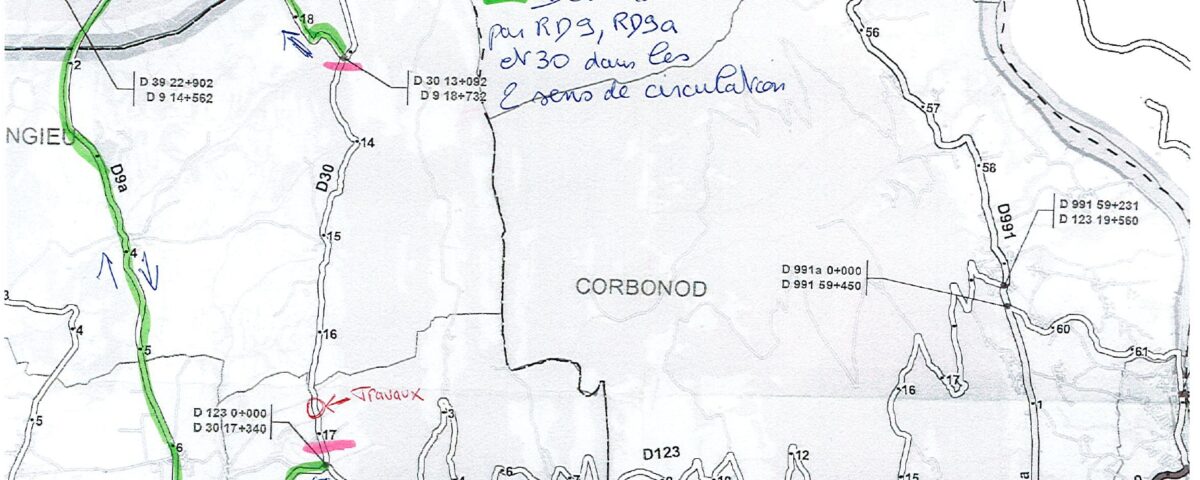 18
par RD9, RD9a
et N30 dans les
2 sens de circulation
2
D 39 22+902
D 9 14+562
D 30 13+092
D 9 18+732
56
57
NGIEU
14
D9a
D30
58
D 991 59+231
D 123 19+560
D991
15
4
D 991a 0+000
D 991 59+450
CORBONOD
3
4
16
60
5
61
17
16
Travaux
D 123 0+000
D 30 17+340
3
1
5
17
6
D123
12
6
7
15
a